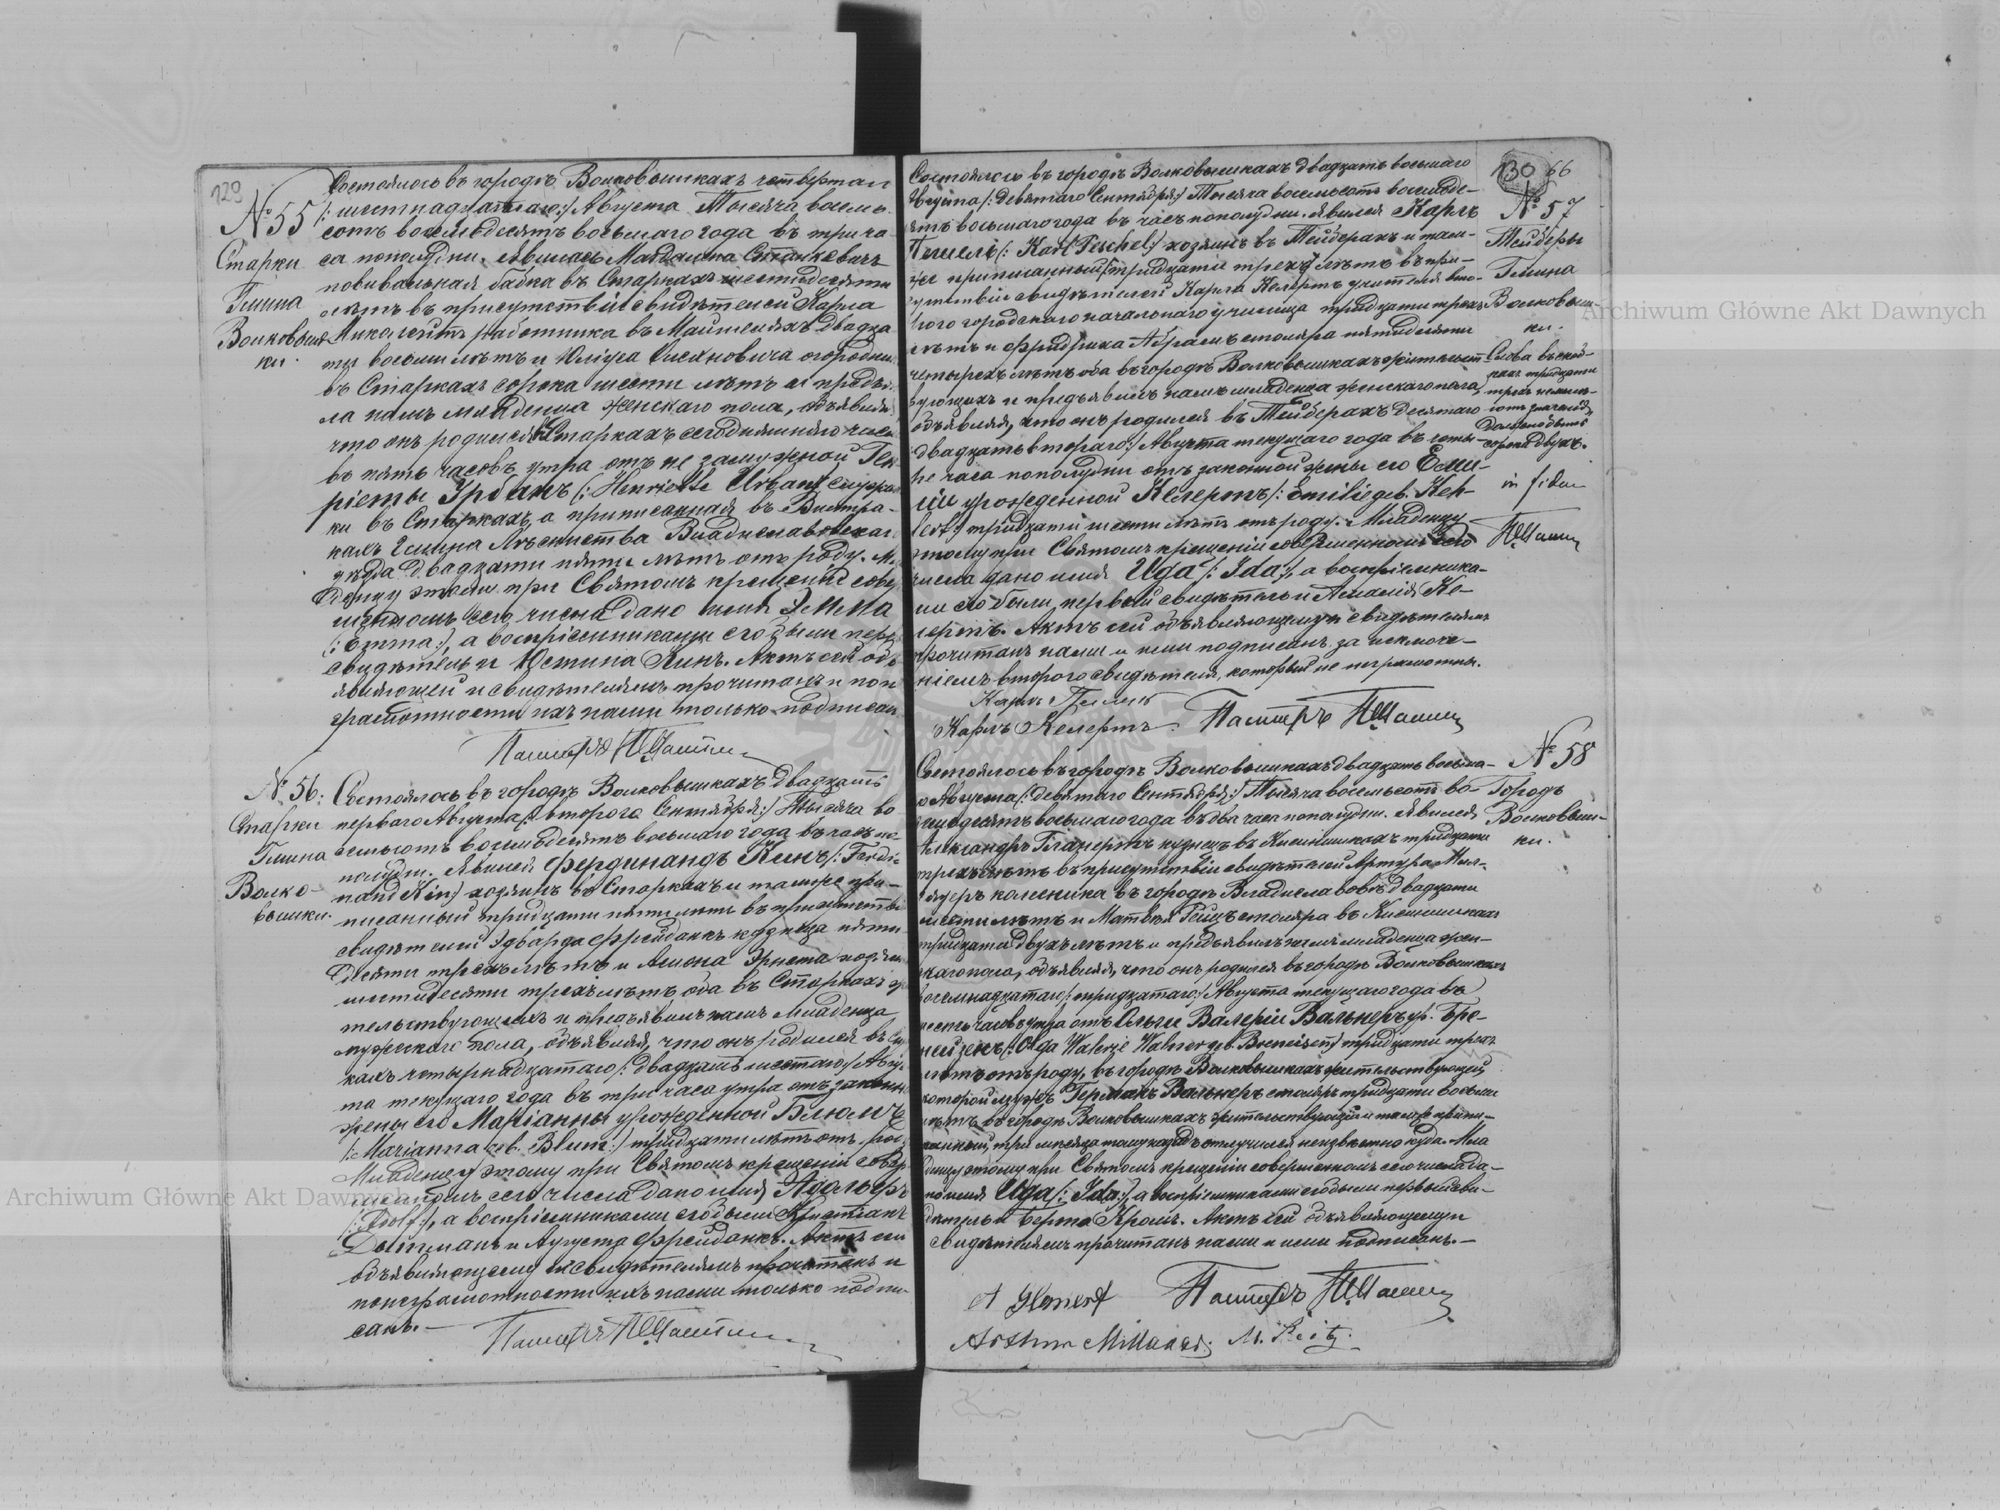 129
№ 55
Старки
Гмина
Волковыш-
ки.
Состоялось въ городѣ Волковышкахъ четвертаго
/: шестнадцатаго:/ Августа Тысяча восемь-
сотъ восемьдесятъ восьмаго года въ три ча-
са пополудни. Явилась Магдалина Станкевичъ
повивальная бабка въ Старкахъ шестидесяти
лѣтъ въ присутствіи свидѣтелей Карла
работника въ двадца-
ти восьми лѣтъ и Юліуса огородника
въ Старкахъ сорока шести лѣтъ и предъяви-
ла намъ младенца женскаго пола, объявляя
что онъ родился въ Старкахъ сегодняшняго числа
въ пять часовъ утра отъ не замужной Ген-
ріеты Урбанъ /: Henriette Urban:/ служан-
ки въ Старкахъ, а приписанной въ
кахъ Гмина Владиславовскаго
уѣзда двадцати пяти лѣтъ отъ роду. Мла-
денцу этому при Святомъ крещеніи совер-
шенномъ сего числа дано имя Эмма
/: Emma:/, а воспріемниками его были первый
свидѣтель и Юстина Кинъ. Актъ сей объ-
являющей и свидѣтелямъ прочитанъ и по не-
грамотности ихъ нами только подписанъ.
Пасторъ
№ 56.
Старки
Гмина
Волко-
вышки.
Состоялось въ городѣ Волковышкахъ двадцать
перваго Августа /: втораго Сентября:/ Тысяча во-
семьсотъ восемьдесятъ восьмаго года въ часъ по-
полудни. Явился Фердинандъ Кинъ /: Ferdi-
nand Kin:/ хозяинъ въ Старкахъ и тамже при-
писанный тридцати пяти лѣтъ въ присутствіи
свидѣтелей Эдварда Фрейданкъ кузнеца пяти-
десяти трехъ лѣтъ и Эрнста хозяина
шестидесяти трехъ лѣтъ оба въ Старкахъ жи-
тельствующихъ и предъявилъ намъ младенца
мужескаго пола, объявляя, что онъ родился въ Стар-
кахъ четырнадцатаго /: двадцать шестаго:/ Авгу-
ста текущаго года въ три часа утра отъ законной
жены его Маріанны урожденной Блюмъ
/: Marianna geb. Blum:/ тридцати лѣтъ отъ роду.
Младенцу этому при Святомъ крещеніи совер-
шенномъ сего числа дано имя Адольфъ
/: Adolf:/, а воспріемниками его были Христіанъ
и Августа Фрейданкъ. Актъ сей
объявляющему и свидѣтелямъ прочитанъ и
по неграмотности ихъ нами только подпи-
санъ.—
Пасторъ
130 66
№ 57
Тейберы
Гмина
Волковыш-
ки.
Слова въ скоб-
кахъ тридцати
трехъ
значенія,
должно быть
сорока двухъ.
in fidem
Состоялось въ городѣ Волковышкахъ двадцать восьмаго
Августа /: Девятаго Сентября:/ Тысяча восемьсотъ восемьде-
сятъ восьмаго года въ часъ пополудни. Явился Карлъ
Пешель /: Karl Peschel:/ хозяинъ въ Тейберахъ и там-
же приписанный /тридцати трехъ/ лѣтъ въ при-
сутствіи свидѣтелей Карла Келертъ учителя
городскаго начальнаго училища тридцати трехъ
лѣтъ и Фридриха Абрамъ столяра пятидесяти
четырехъ лѣтъ оба въ городѣ Волковышкахъ жительст-
вующихъ и предъявилъ намъ младенца женскаго пола,
объявляя, что онъ родился въ Тейберахъ десятаго
/: двадцать втораго:/ Августа текущаго года въ четы-
ре часа пополудни отъ законной жены его Еми-
ліи урожденной Келертъ /: Emilie geb. Keh-
lert:/ тридцати шести лѣтъ отъ роду. Младенцу
этому при Святомъ крещеніи совершенномъ сего
числа дано имя Ида /: Ida:/, а воспріемника-
ми его были первый свидѣтель и Амалія Ке-
лертъ. Актъ сей объявляющему и свидѣтелямъ
прочитанъ нами и ими подписанъ за исключе-
ніемъ втораго свидѣтеля, который не грамотны.
Карлъ Пешель
Карлъ Келертъ. Пасторъ
№ 58
Городъ
Волковыш-
ки.
Состоялось въ городѣ Волковышкахъ двадцать восьма-
го Августа /: Девятаго Сентября:/ Тысяча восемьсотъ во-
семьдесятъ восьмаго года въ два часа пополудни. Явился
Александръ Гланертъ кузнецъ въ тридцати
трехъ лѣтъ въ присутствіи свидѣтелей Артура Мил-
колесника въ городѣ Владиславовѣ двадцати
шести лѣтъ и Матвѣя Рейцъ столяра въ
тридцати двухъ лѣтъ и предъявилъ намъ младенца жен-
скаго пола, объявляя, что онъ родился въ городѣ Волковышкахъ
восемнадцатаго /: тридцатаго:/ Августа текущаго года въ
шесть часовъ утра отъ Ольги Валеріи Вальнеръ ур. Бре-
нейзенъ /: Olga Walerie Walner geb. Breneisen:/ тридцати трехъ
лѣтъ отъ роду, въ городѣ Волковышкахъ жительствующей,
которой мужъ Германъ Вальнеръ столяръ тридцати восьми
лѣтъ въ городѣ Волковышкахъ жительствующій и тамже припи-
санный, три мѣсяца тому назадъ отлучился неизвѣстно куда. Мла-
денцу этому при Святомъ крещеніи совершенномъ сего числа да-
но имя Ида /: Ida:/, а воспріемниками его были первый сви-
дѣтель и Берта Кролль. Актъ сей объявляющему и
свидѣтелямъ прочитанъ нами и ими подписанъ.—
A Glanert Пасторъ
Arthur M. Reitz.
Archiwum Główne Akt Dawnych
Archiwum Główne Akt Dawnych